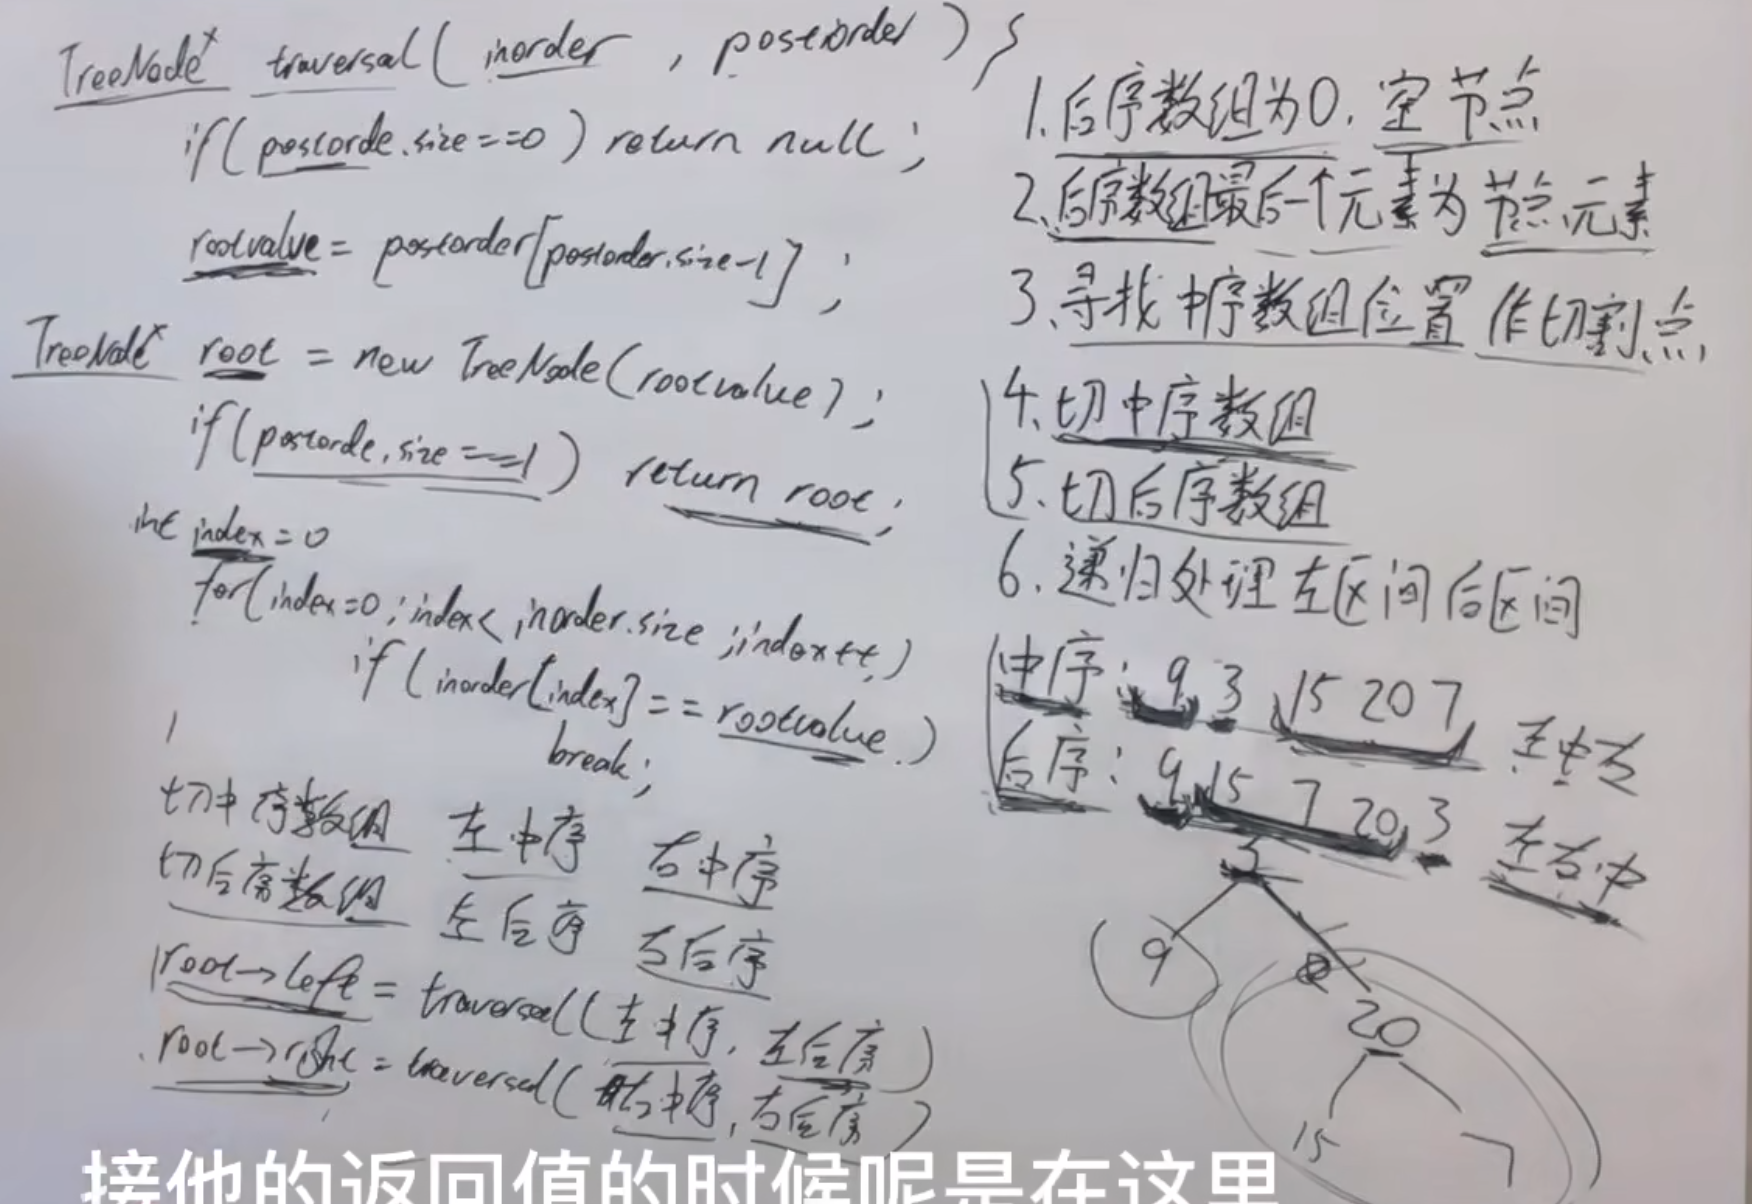 TreeNode* traversal( inorder , postorder ) {
if( postorde.size==0 ) return null ;
rootvalue = postorder[postorder.size-1] ;
TreeNode* root = new TreeNode(rootvalue) ;
if( postorde.size ==1 ) return root ;
int index=0
for(index=0 ; index< inorder.size ; index++)
if ( inorder[index] == rootvalue )
break ;
切中序数组 左中序 右中序
切后序数组 左后序 右后序
root→left = traversal(左中序, 左后序)
root→right = traversal( 右中序, 右后序)
1.后序数组为0. 空节点
2、后序数组最后一个元素为节点元素
3、寻找中序数组位置 作切割点
4.切中序数组
5.切后序数组
6.递归处理左区间后区间
中序: 9 3 15 20 7 左中右
后序: 9, 15 7 20, 3 左右中
3
9
20
15 7
接他的返回值的时候呢是在这里